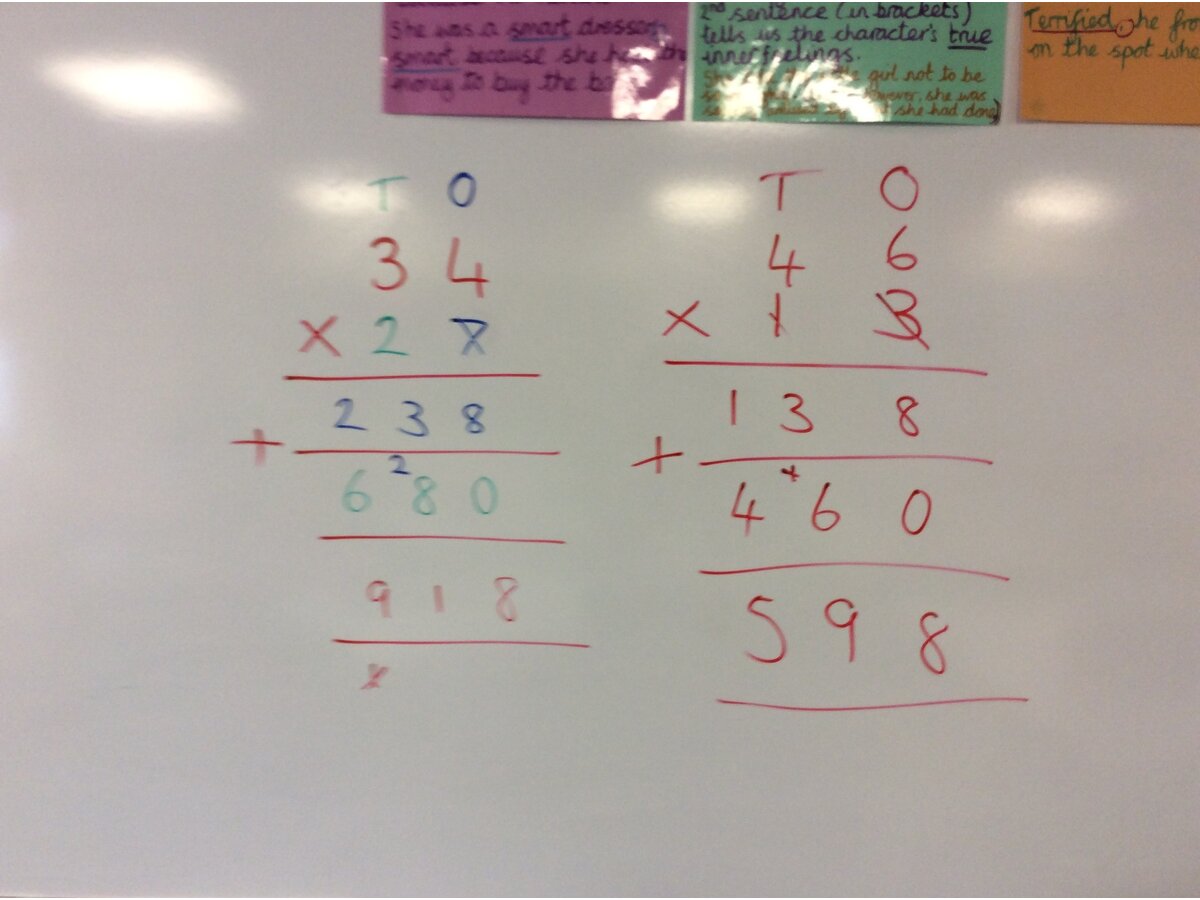 She was a smart dresser,
smart because she had the
money to buy the
2nd sentence (in brackets)
tells us the character's true
inner feelings.
girl not to be
she was
she had done)
Terrified, he fro
on the spot whe
T O
3 4
X 2 7
2 3 8
+
2
6 8 0
9 1 8
1
T O
4 6
X 1 3
1 3 8
+
1
4 6 0
5 9 8